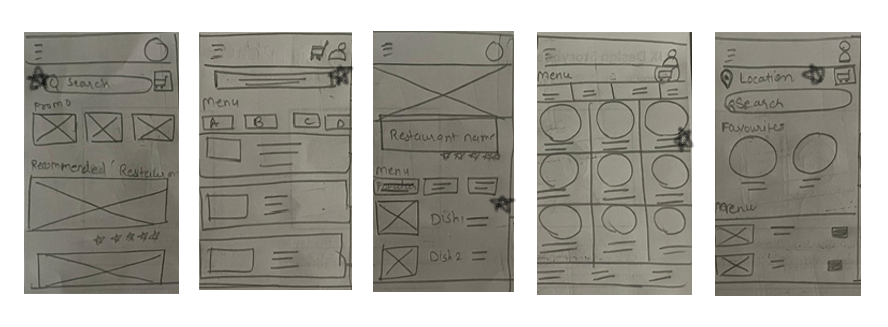 Search
Promo
Recommended
Menu
A B C D
Restaurant name
Menu
Dish1
Dish 2
Menu
Location
Search
Favourites
Menu